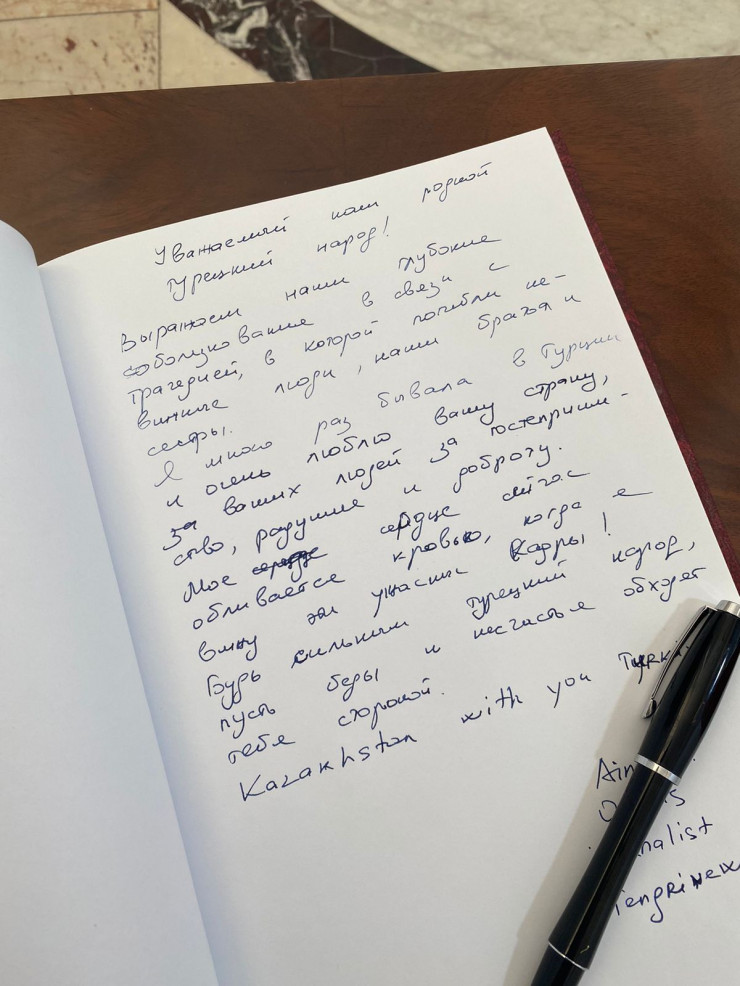 Уважаемый наш родной
Турецкий народ!
Выражаем наши глубокие
соболезнование в связи с
трагедией, в которой погибли не-
винные люди, наши братья и
сестры.
Я много раз бывала в Турции
и очень люблю вашу страну,
за ваших людей за гостеприим-
ство, радушие и доброту.
Мое сердце сейчас
обливается кровью, когда я
вижу эти ужасные кадры!
Будь сильным Турецкий народ,
пусть беды и несчастье обходят
тебя стороной.
Kazakhstan with you